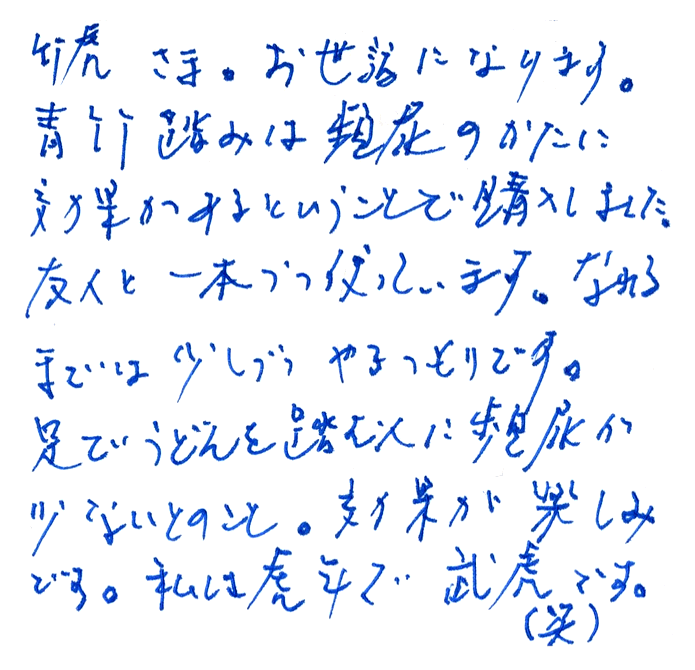 竹虎さま。お世話になります。
青竹踏みは頻尿のかたに
効果があるということで購入しました。
友人と一本づつ使っています。なれる
までは少しづつやるつもりです。
足でうどんを踏む人に頻尿が
少ないとのこと。効果が楽しみ
です。私は虎年で武虎です。
(笑)